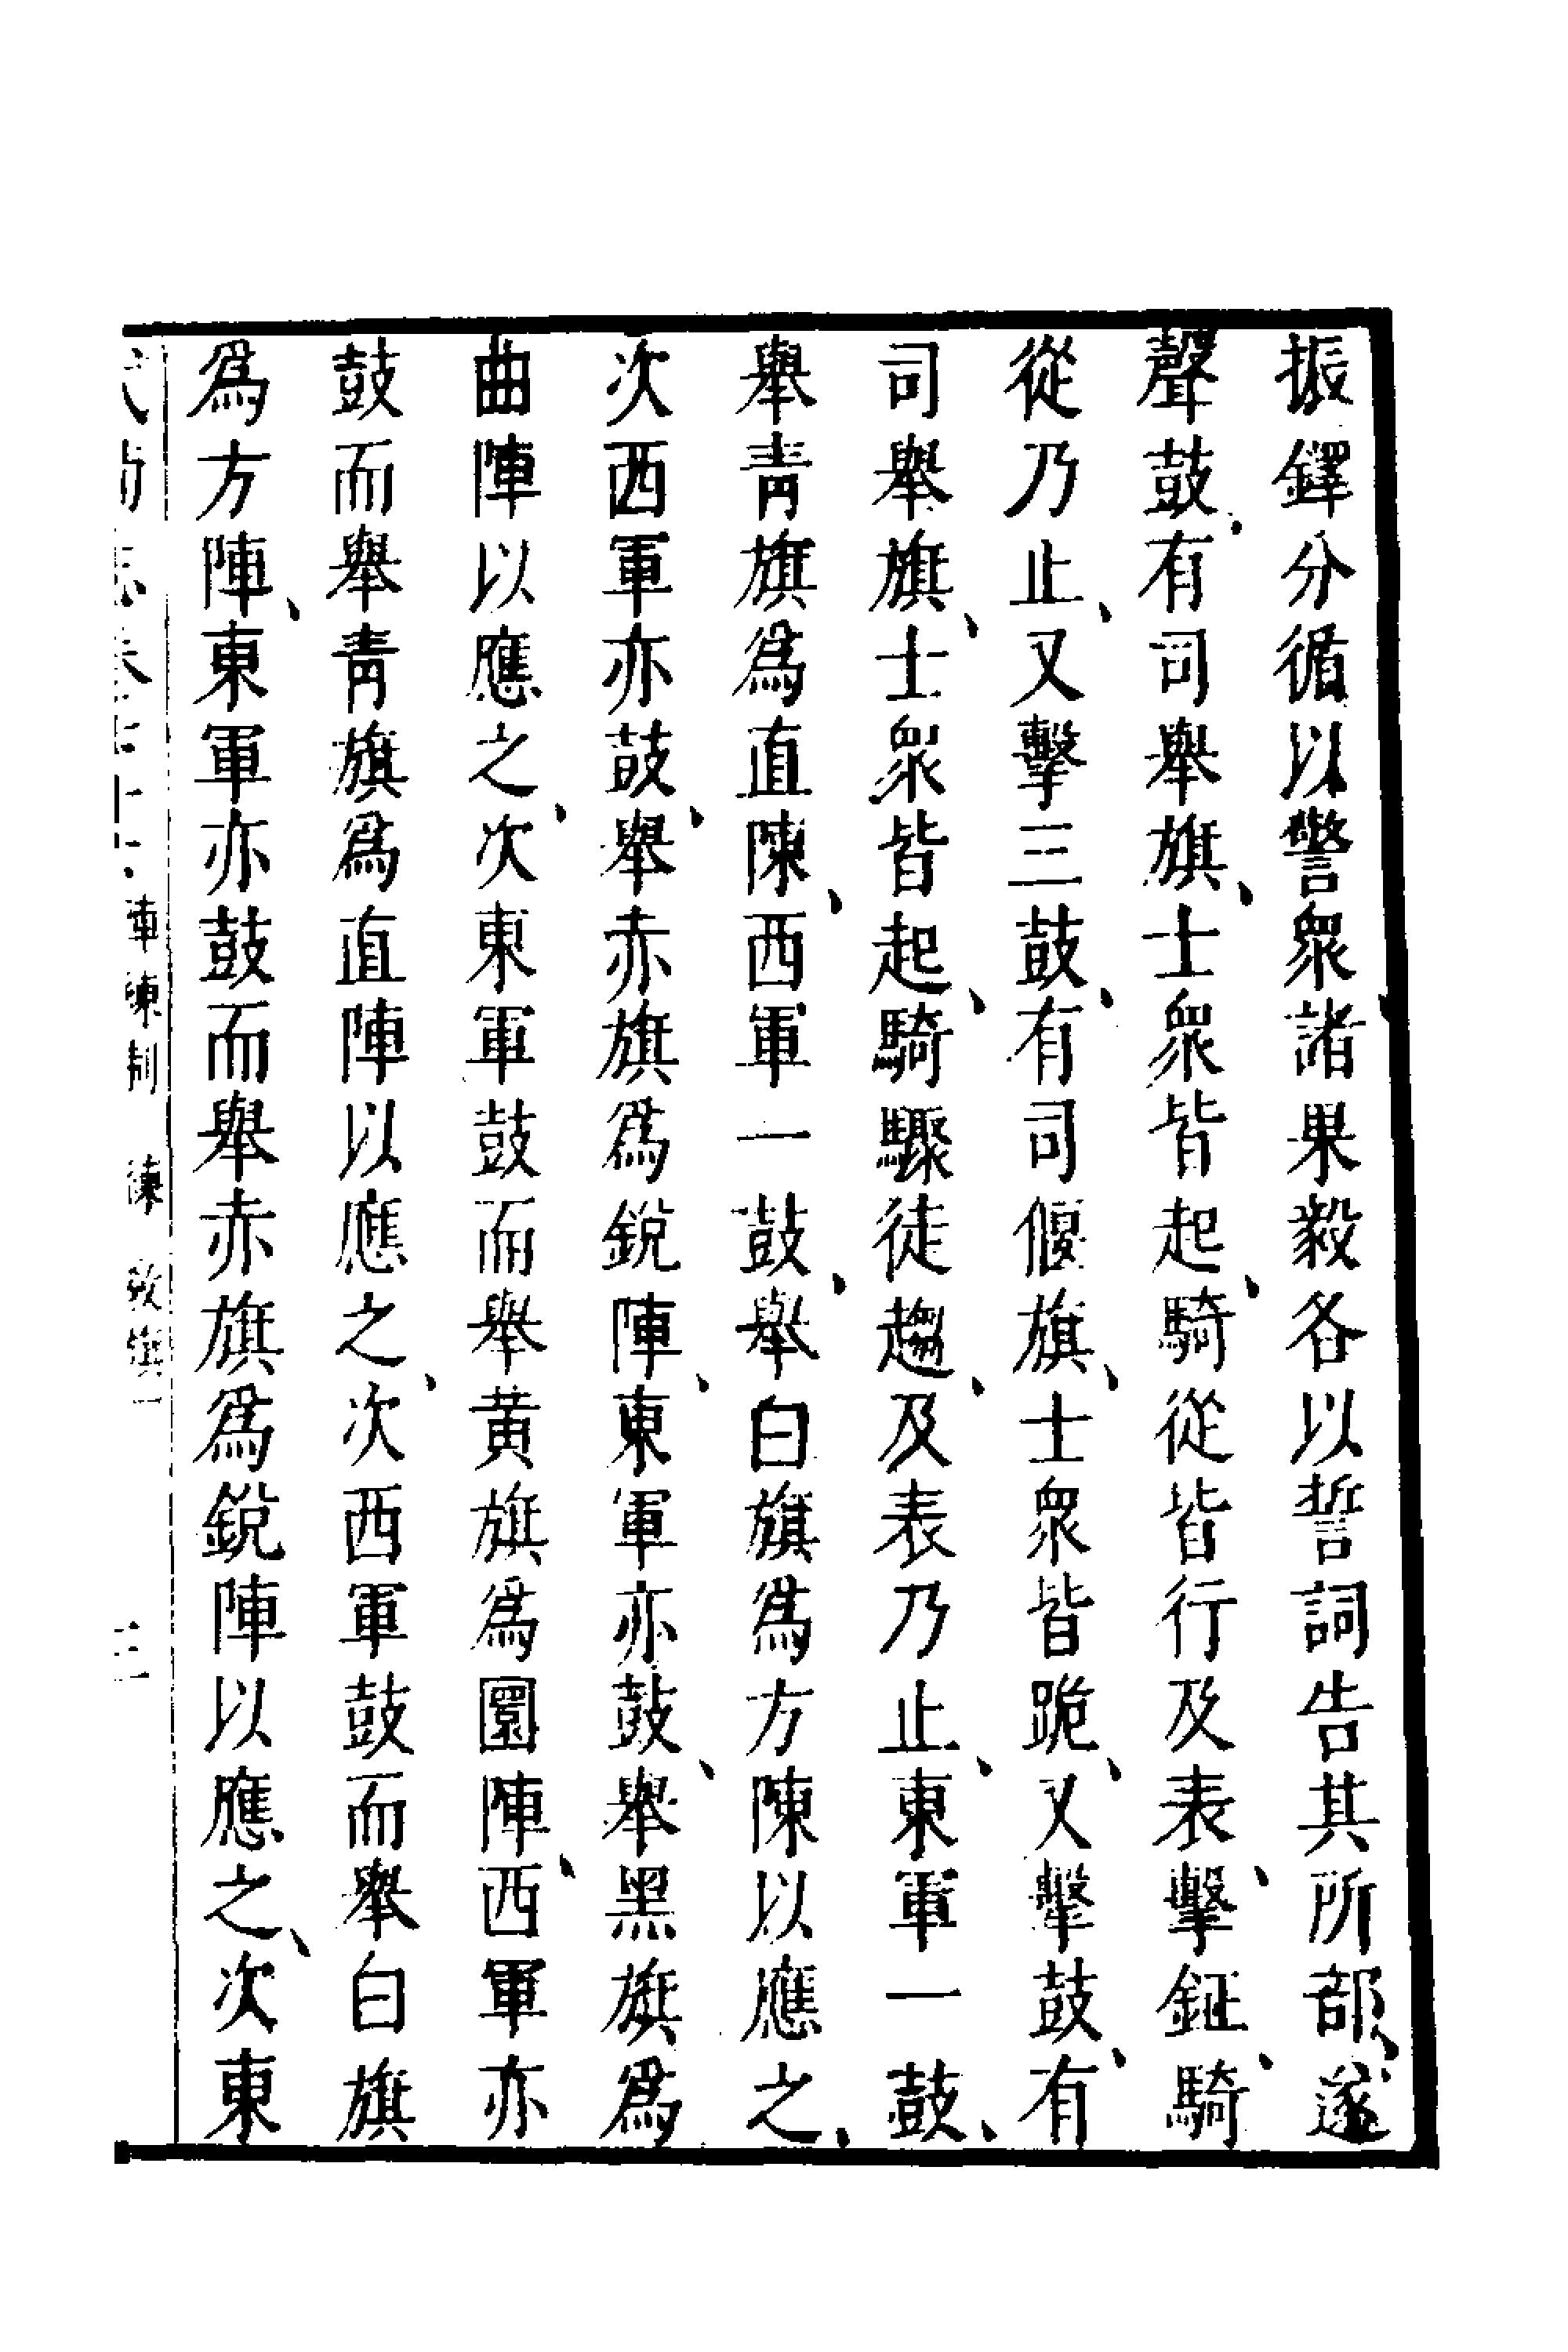 振鐸分循以警衆諸果毅各以誓詞告其所部、遂
聲鼓、有司舉旗、士衆皆起、騎從皆行及表、擊鉦、騎
從乃止、又擊三鼓、有司偃旗、士衆皆跪、又擊鼓、有
司舉旗、士衆皆起、騎驟徒趨、及表乃止、東軍一鼓、
舉青旗爲直陳、西軍一鼓、舉白旗爲方陳以應之、
次西軍亦鼓、舉赤旗爲銳陣、東軍亦鼓、舉黑旗爲
曲陣以應之、次東軍鼓而舉黄旗爲圜陣、西軍亦
鼓而舉青旗爲直陣以應之、次西軍鼓而舉白旗
爲方陣、東軍亦鼓而舉赤旗爲銳陣以應之、次東
陣練制 練 教旗一